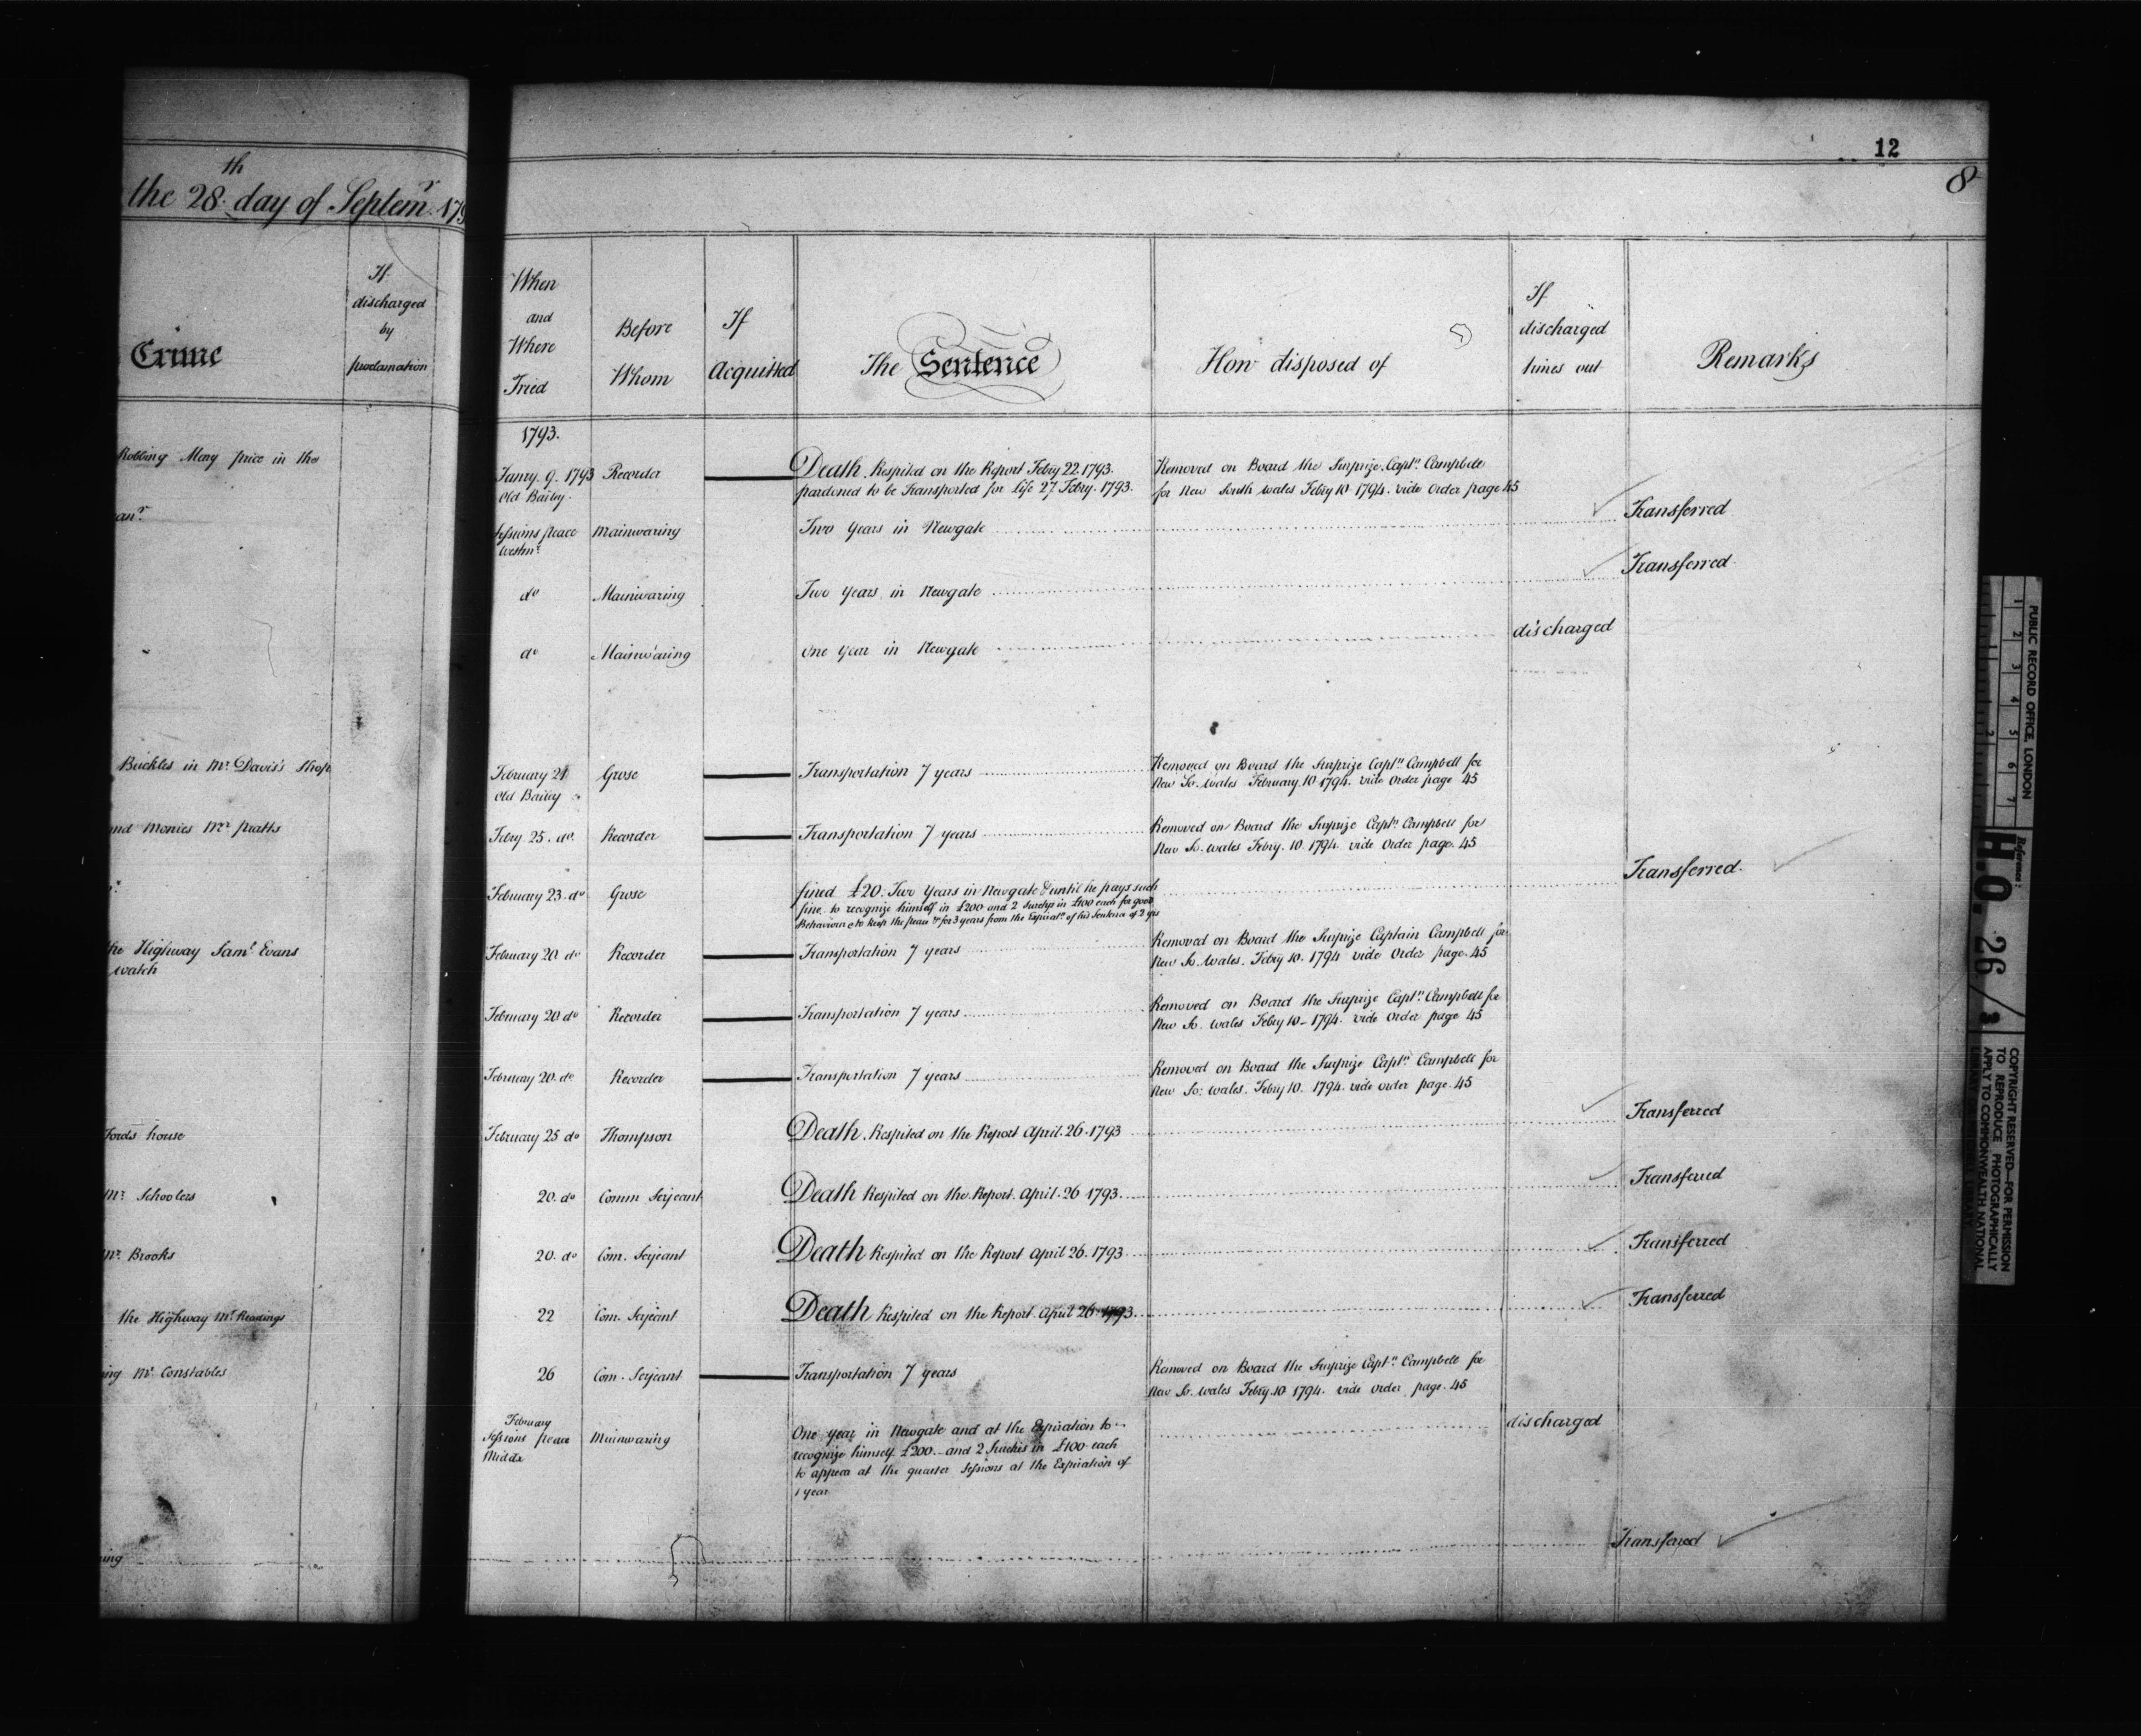 12
8
the 28th day of Septemr 179
Crime
If
discharged
by
proclamation
When
and
Where
Tried
Before
Whom
If
Acquitted
The Sentence
How disposed of
If
discharged
times out
Remarks
1793.
Robbing Mary price in the
Janry. 9. 1793
Old Bailey.
Recorder
Death. Respited on the Report Febry 22 1793.
pardoned to be Transported for Life 27 Febry. 1793.
Removed on Board the Surprize. Captn. Campbell
for New South Wales Febry 10 1794. vide Order page 45
Sessions peace
Westmr.
Mainwaring
Two Years in Newgate
Transferred
do
Mainwaring
Two Years in Newgate
Transferred
do
Mainwaring
One Year in Newgate
discharged
Buckles in Mr. Davis's Shop
February 21
Old Bailey
Grose
Transportation 7 years
Removed on Board the Surprize Captn. Campbell for
New So. Wales February 10 1794. vide Order page 45
and Monies Mr. pratts
Febry 25. do.
Recorder
Transportation 7 years
Removed on Board the Surprize Captn. Campbell for
New So. Wales Febry. 10. 1794. vide Order page. 45
February 23. do
Grose
fined £20. Two Years in Newgate & until he pays such
fine. to recognize himself in £200 and 2 Suretys in £100 each for good
Behaviour & to keep the peace for 3 years from the Expiratn. of his Sentence of 2 yrs
Transferred.
the Highway Saml. Evans
watch
February 20 do
Recorder
Transportation 7 years
Removed on Board the Surprize Captain Campbell for
New So. Wales. Febry 10. 1794 vide Order page. 45
February 20 do
Recorder
Transportation 7 years
Removed on Board the Surprize Captn. Campbell for
New So. Wales Febry 10 - 1794. vide Order page 45
February 20. do
Recorder
Transportation 7 years
Removed on Board the Surprize Captn. Campbell for
New So: Wales. Febry 10. 1794. vide order page. 45
Fords house
February 25 do
Thompson
Death. Respited on the Report April. 26. 1793
Transferred
Mr. Schoolers
20. do
Comm Serjeant
Death Respited on the Report. April. 26 1793
Transferred
Mr. Brooks
20. do
Com. Serjeant
Death Respited on the Report April 26. 1793
Transferred
the Highway Mr. Readings
22
Com. Serjeant
Death Respited on the Report. April 26. 1793.
Transferred
ing Mr. Constables
26
Com. Serjeant
Transportation 7 years
Removed on Board the Surprize Captn. Campbell for
New So. Wales Febry. 10 1794. vide Order page. 45
February
Sessions peace
Middx
Mainwaring
One year in Newgate and at the Expiration to
recognize himself £200 - and 2 Sureties in £100 each
to appear at the quarter Sessions at the Expiration of
1 year
discharged
ing
Transferred
PUBLIC RECORD OFFICE, LONDON
1 2 3 4 5 6 7
1 2
Reference:
H.O. 26/3
COPYRIGHT RESERVED—FOR PERMISSION
TO REPRODUCE PHOTOGRAPHICALLY
APPLY TO COMMONWEALTH NATIONAL